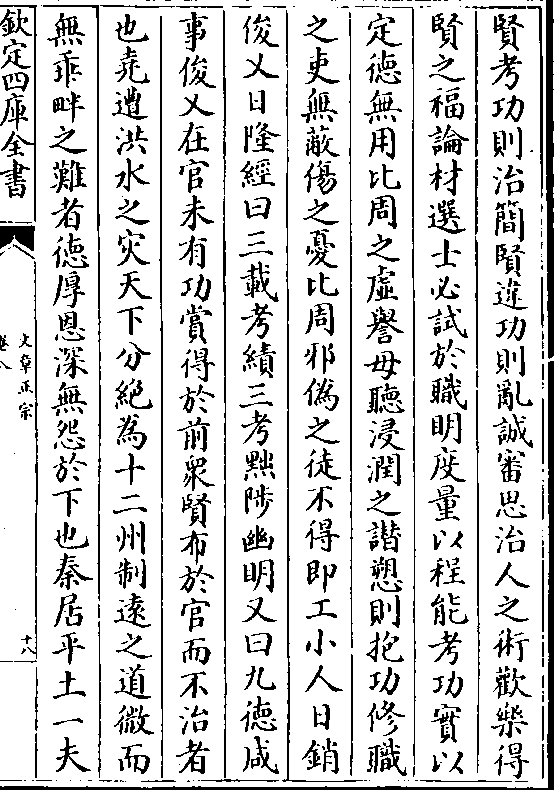 賢考功則治簡賢違功則亂誠審思治人之術歡樂得
賢之福論材選士必試於職明度量以程能考功實以
定徳無用比周之虛譽毋聽浸潤之譖愬則抱功修職
之吏無蔽傷之憂比周邪偽之徒不得即工小人日銷
俊乂日隆經曰三載考績三考黜陟幽明又曰九徳咸
事俊乂在官未有功賞得於前衆賢布於官而不治者
也堯遭洪水之災天下分絶為十二州制逺之道微而
無乖畔之難者徳厚恩深無怨於下也秦居平土一夫
欽定四庫全書
文章正宗
卷八
十八